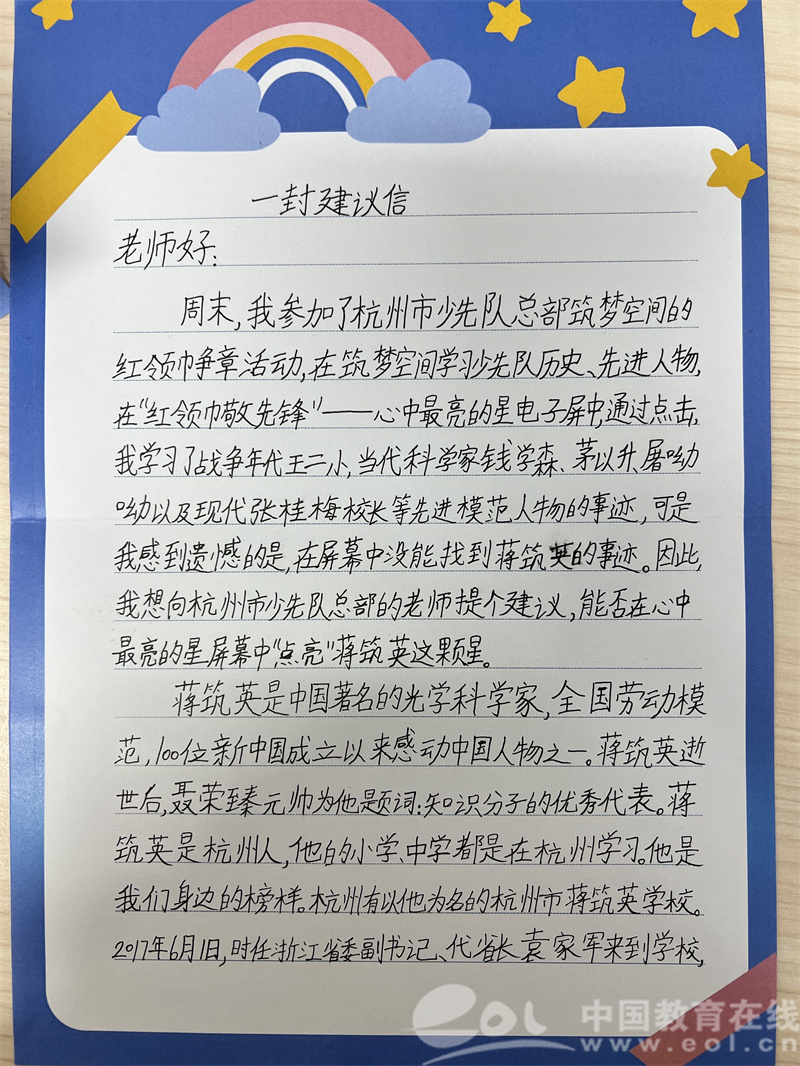 一封建议信
老师好:
周末,我参加了杭州市少先队总部筑梦空间的
红领巾争章活动,在筑梦空间学习少先队历史、先进人物,
在“红领巾敬先锋”——心中最亮的星电子屏中,通过点击,
我学习了战争年代王二小,当代科学家钱学森、茅以升、屠呦
呦以及现代张桂梅校长等先进模范人物的事迹,可是
我感到遗憾的是,在屏幕中没能找到蒋筑英的事迹。因此,
我想向杭州市少先队总部的老师提个建议,能否在心中
最亮的星屏幕中“点亮”蒋筑英这颗星。
蒋筑英是中国著名的光学科学家,全国劳动模
范,100位新中国成立以来感动中国人物之一。蒋筑英逝
世后,聂荣臻元帅为他题词:知识分子的优秀代表。蒋
筑英是杭州人,他的小学、中学都是在杭州学习。他是
我们身边的榜样。杭州有以他为名的杭州市蒋筑英学校。
2017年6月1日,时任浙江省委副书记、代省长袁家军来到学校,
eol 中国教育在线
www.eol.cn